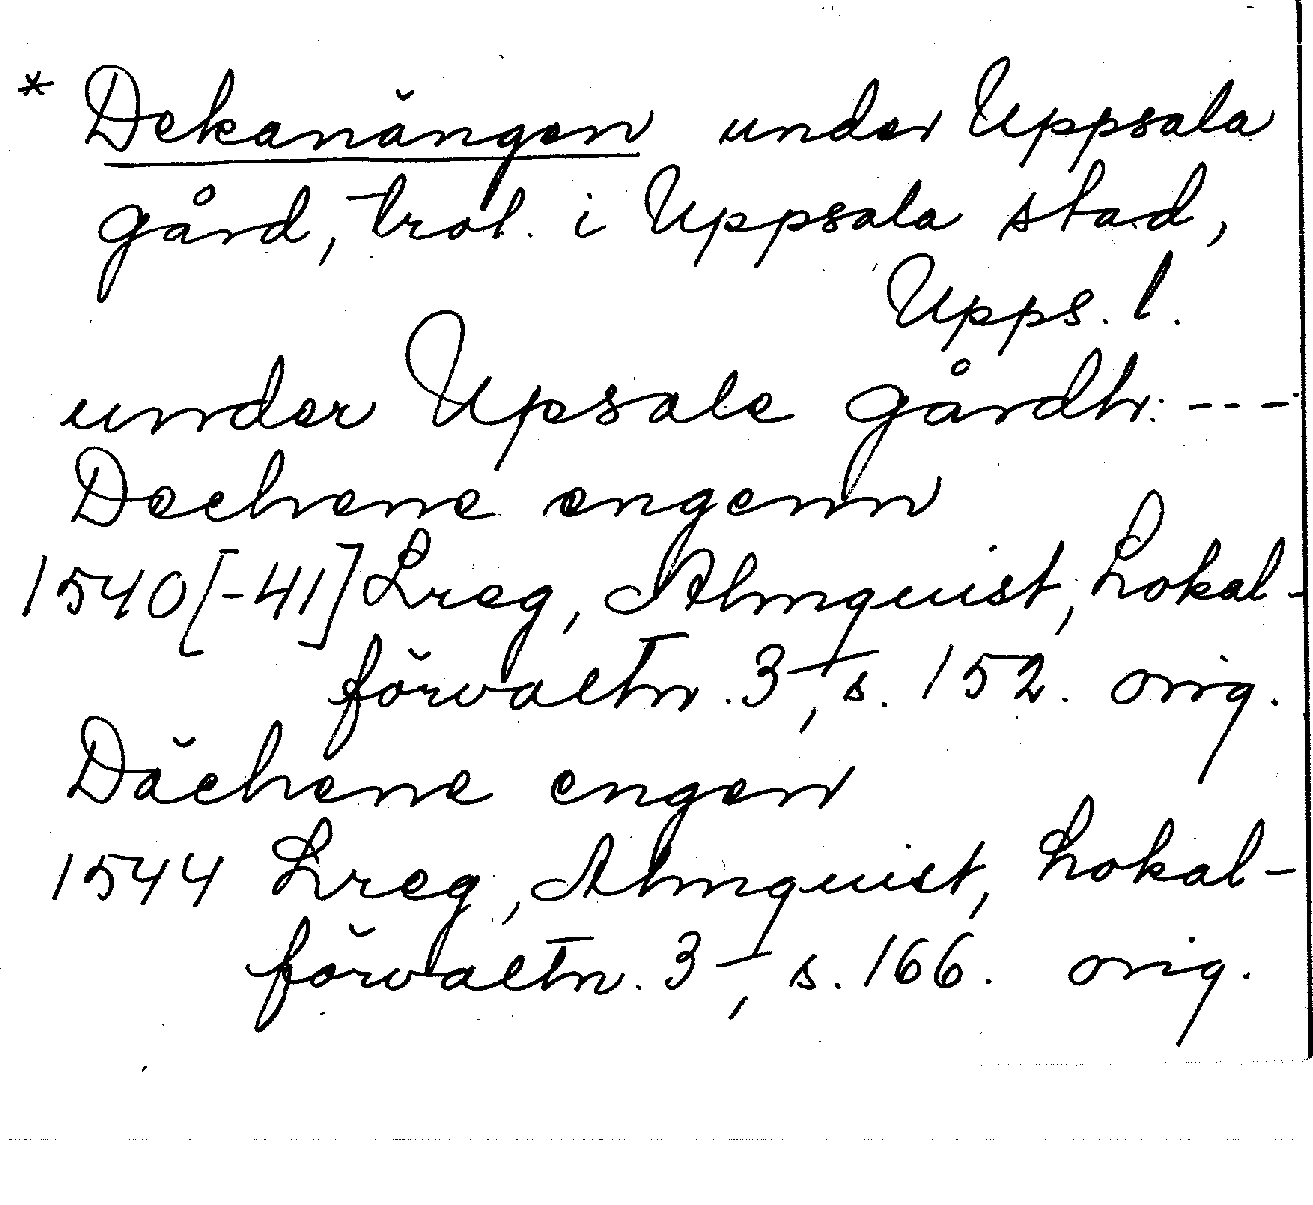 * Dekanängen under Uppsala
gård, trol. i Uppsala stad,
Upps. l.
under Upsale gårdh: ---
Dechene engenn
1540[-41] Lreg, Almquist, Lokal-
förvaltn. 3, s. 152. orig.
Dächene engen
1544 Lreg, Almquist, Lokal-
förvaltn. 3, s. 166. orig.